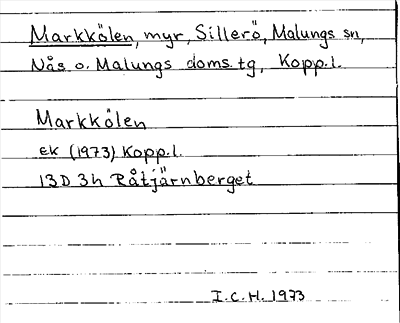 Markkölen, myr, Sillerö, Malungs sn,
Nås o. Malungs doms.tg, Kopp.l.
Markkölen
ek (1973) Kopp.l.
13D 3h Råtjärnberget
I.C.H. 1973